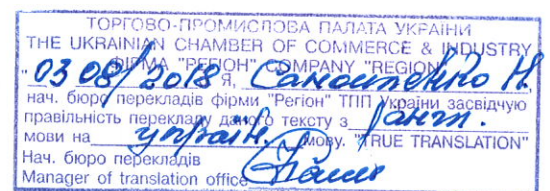 ТОРГОВО-ПРОМИСЛОВА ПАЛАТА УКРАЇНИ
THE UKRAINIAN CHAMBER OF COMMERCE & INDUSTRY
ФІРМА "РЕГІОН" COMPANY "REGION"
"03 08/2018 Я, Самойленко Н.
нач. бюро перекладів фірми "Регіон" ТПП України засвідчую
правільність перекладу даного тексту з англ.
мови на україн. мову. "TRUE TRANSLATION"
Нач. бюро перекладів
Manager of translation office